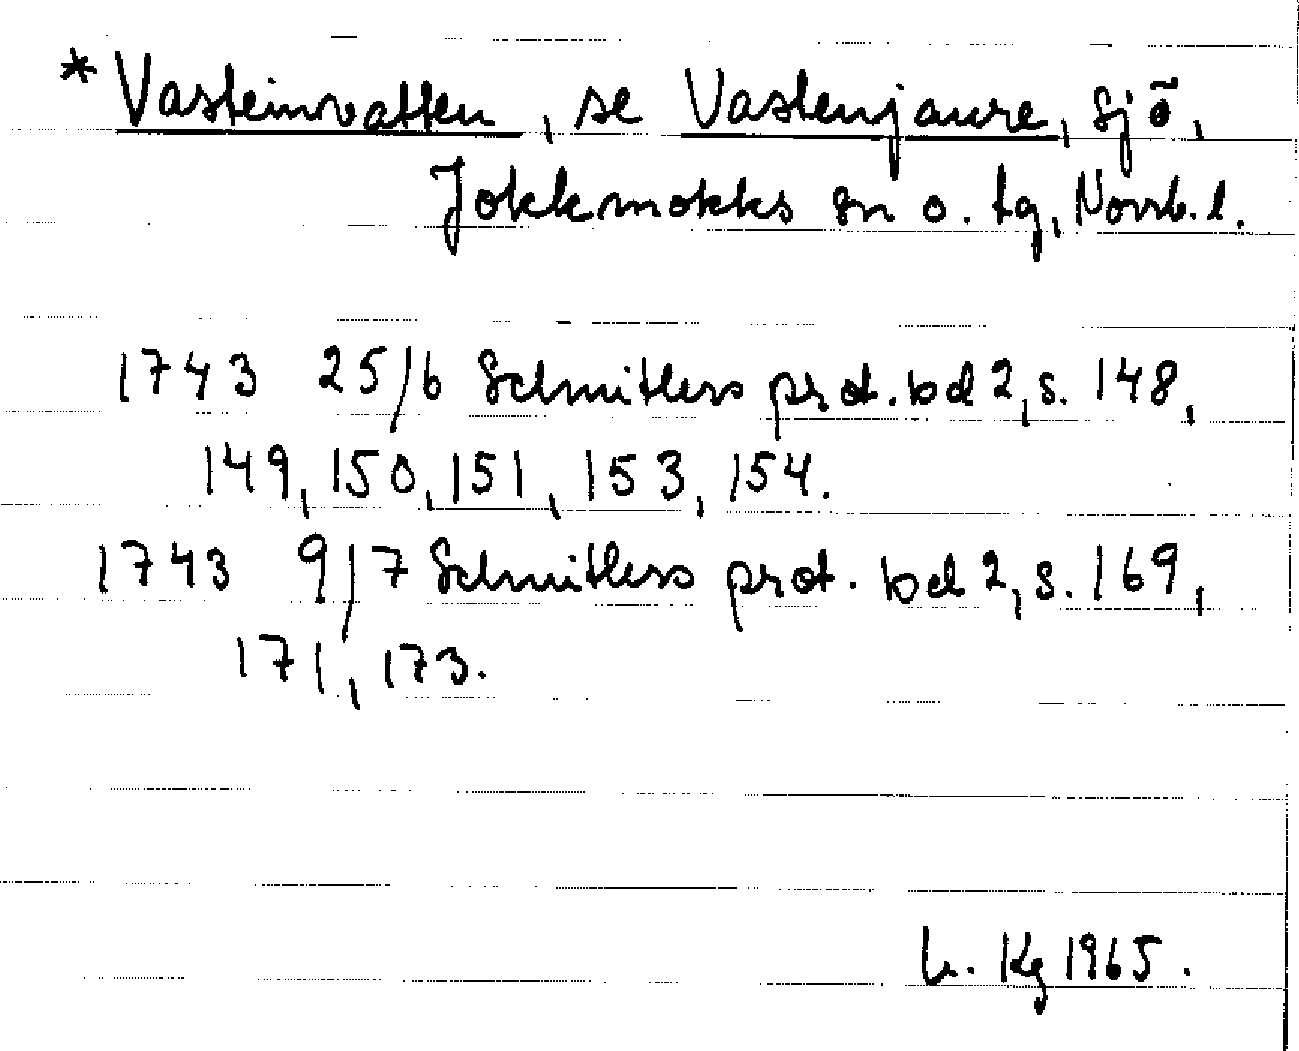 * Vasteinvatten, se Vastenjaure, sjö,
Jokkmokks sn o. tg, Norrb. l.
1743 25/6 Schnitlers prot. bd 2, s. 148,
149, 150, 151, 153, 154.
1743 9/7 Schnitlers prot. bd 2, s. 169,
171, 173.
Kg 1965.